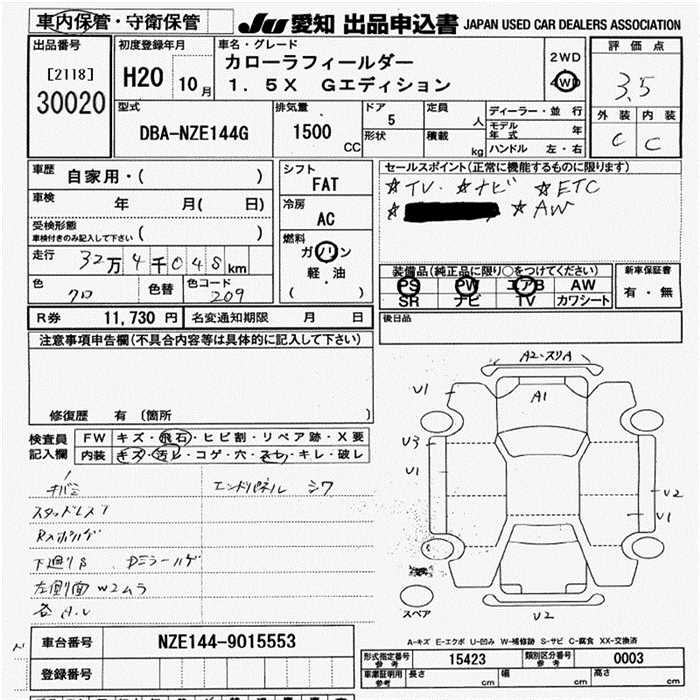 車内保管・守衛保管
JU 愛知 出品申込書 JAPAN USED CAR DEALERS ASSOCIATION
出品番号
[2118]
30020
初度登録年月
H20 10月
車名・グレード
カローラフィールダー
1.5X Gエディション
2WD
4WD
評価点
3.5
外装 内装
C C
型式
DBA-NZE144G
排気量
1500
CC
ドア
5
形状
定員
人
積載
kg
ディーラー・並行
モデル年式 年
ハンドル 左・右
車歴 自家用・( )
車検 年 月( 日)
受検形態
車検付きのみ記入して下さい ( )
走行 32万4千048km
色 クロ
色替
色コード 209
シフト
FAT
冷房
AC
燃料
ガソリン
軽・油
( )
セールスポイント(正常に機能するものに限ります)
☆TV・ ☆ナビ ☆ETC
☆ ☆AW
装備品(純正品に限り○をつけてください)
PS PW エアB AW
SR ナビ TV カワシート
新車保証書
有・無
R券 11,730円 名変通知期限 月 日
後日品
注意事項申告欄(不具合内容等は具体的に記入して下さい)
修復歴 有(箇所 )
検査員記入欄
FW キズ・飛石・ヒビ割・リペア跡・X要
内装 キズ・汚レ・コゲ・穴・スレ・キレ・破レ
エンドパネル シワ
スタッドレス
下廻りS Dミラーハゲ
左側面W2ムラ
各A.U
A2-スリA
A1
U1
U3
U1
U2
U1
U2
スペア
A-キズ E-エクボ U-凹み W-補修跡 S-サビ C-腐食 XX-交換済
車台番号 NZE144-9015553
登録番号
形式指定番号 参考 15423 類別区分番号 参考 0003
車庫証明用 参考 長さ cm 幅 cm 高さ cm